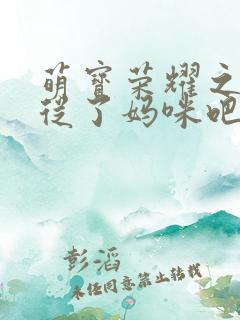 萌寶荣耀之
從了妈咪吧
彭滔
未经同意禁止转载